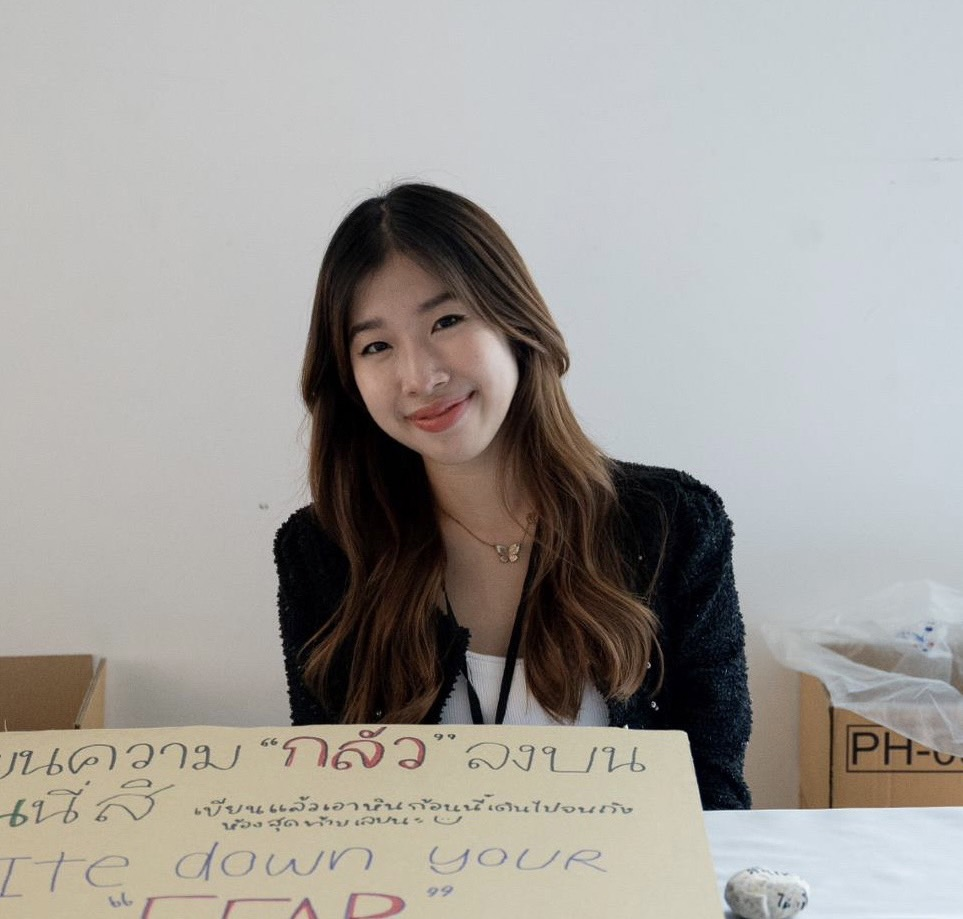 ยนความ "กลัว" ลงบน
นนี่สิ
เขียนแล้วเอาหินก้อนนี้เดินไปจนถึง
ห้องสุดท้ายเลยนะ
ite down your
"FEAR"
PH-0